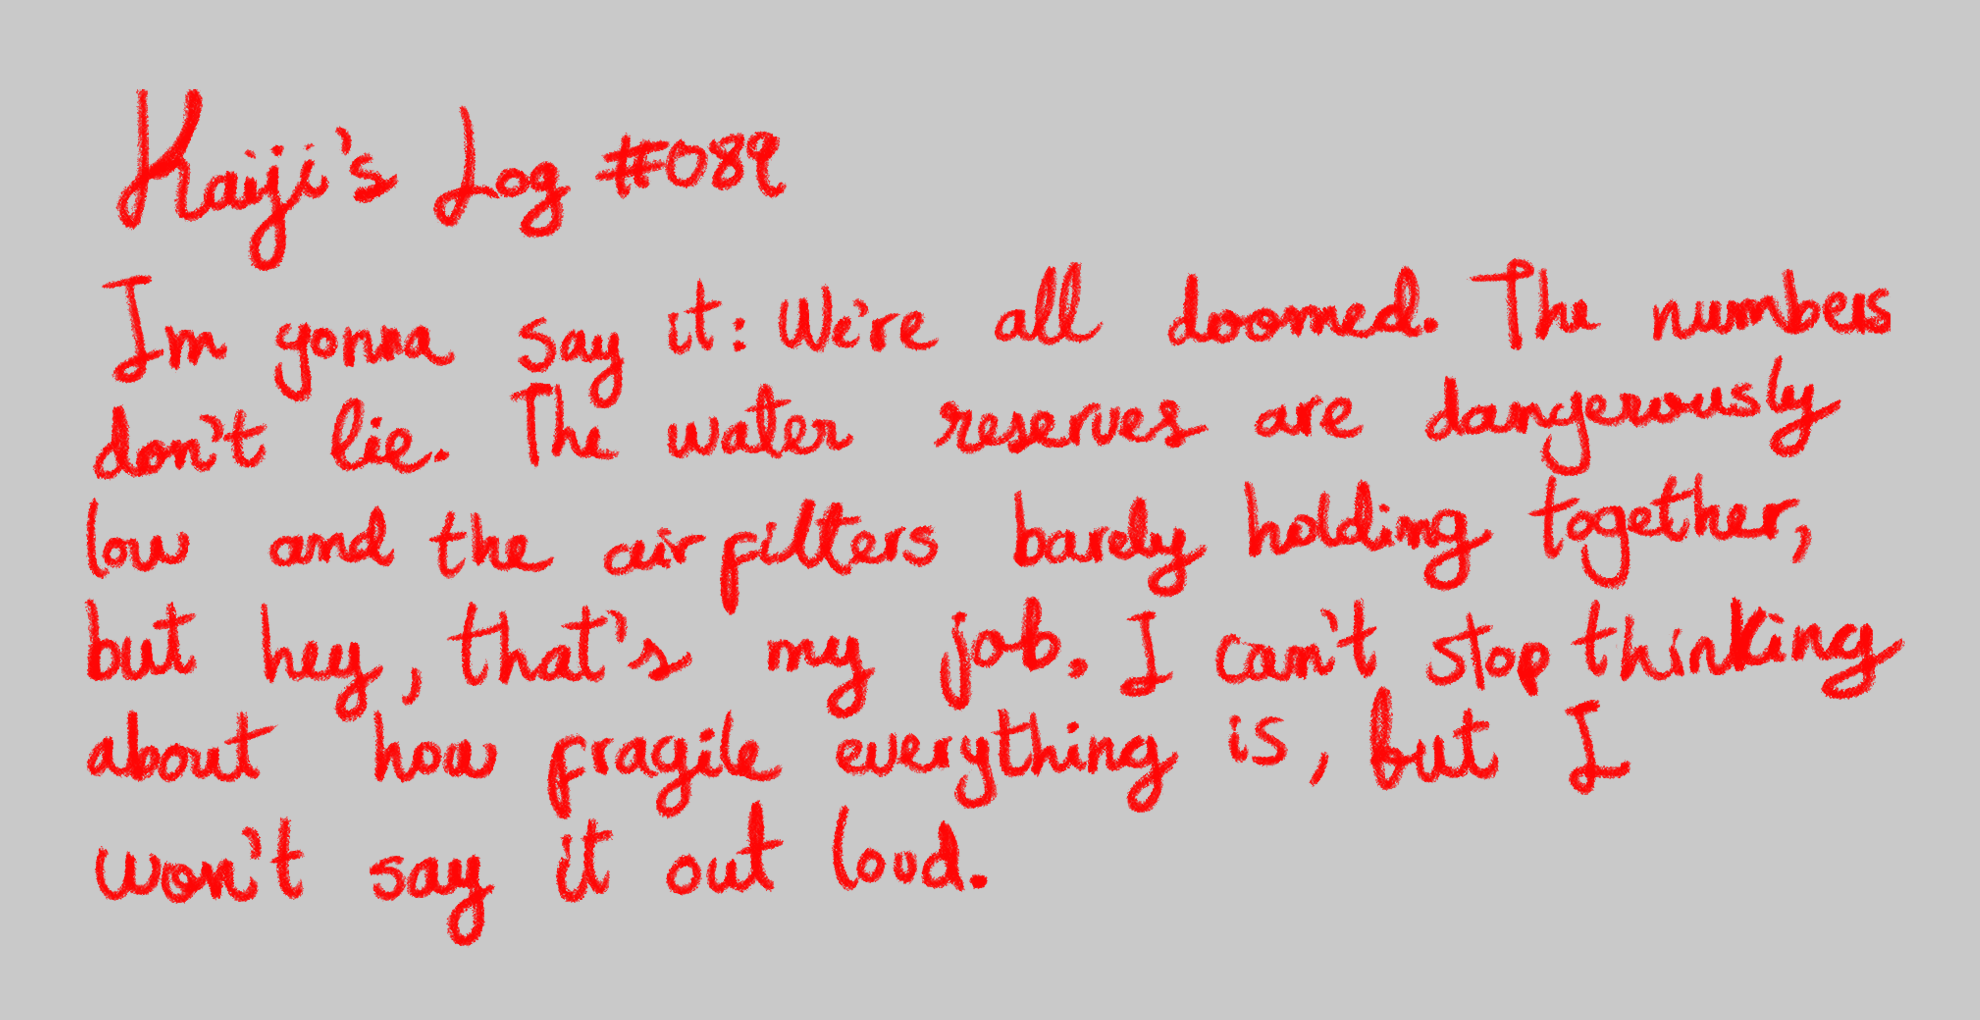 Kaiji's Log #089
Im gonna say it: We're all doomed. The numbers
don't lie. The water reserves are dangerously
low and the air filters barely holding together,
but hey, that's my job. I can't stop thinking
about how fragile everything is, but I
won't say it out loud.